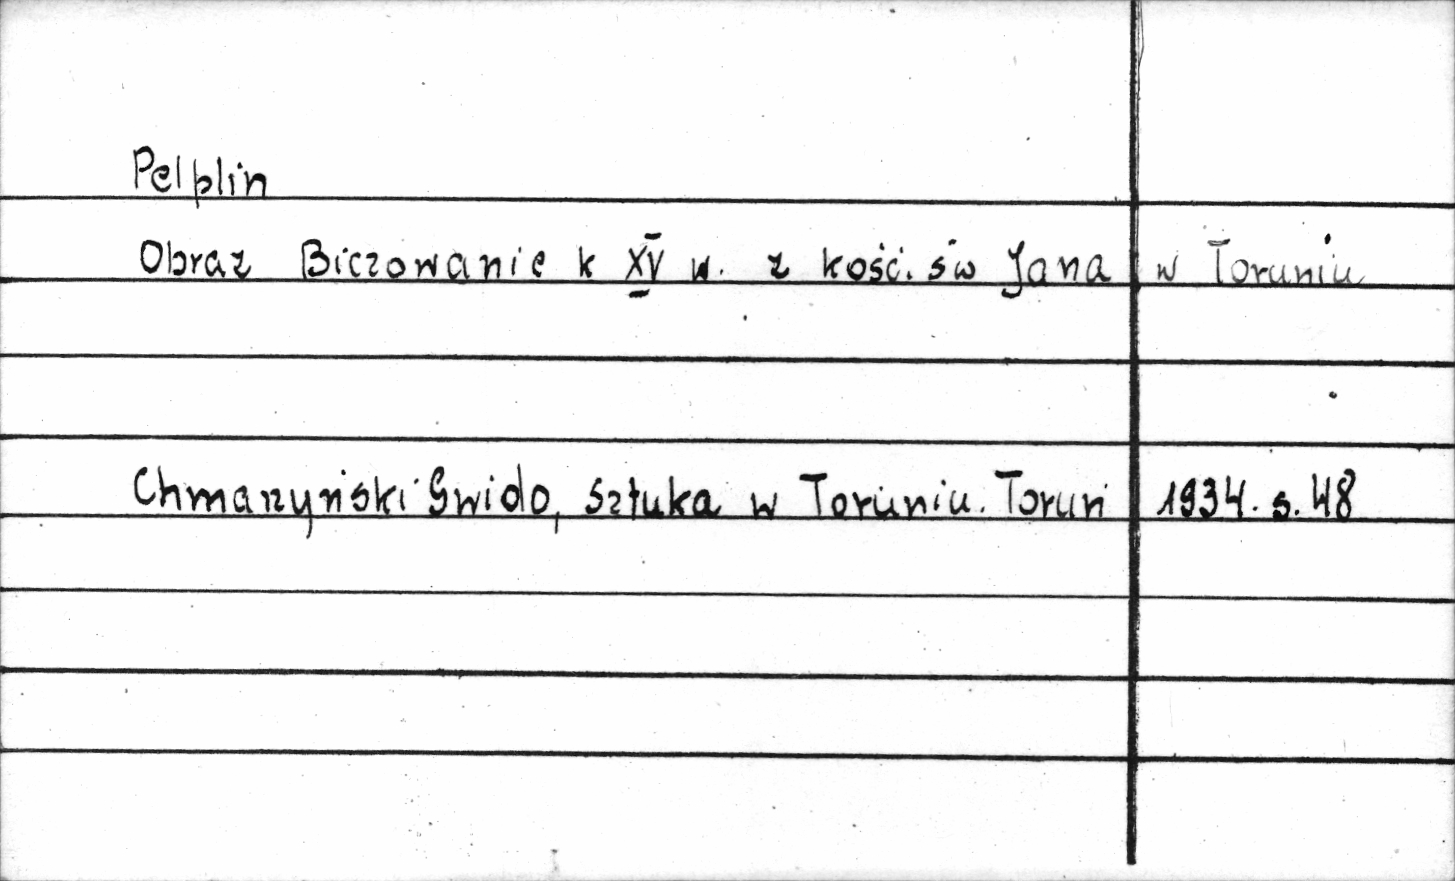 Pelplin
Obraz Biczowanie k XV w. z kość. św Jana w Toruniu
Chmarzyński Gwido, Sztuka w Toruniu. Toruń 1934. s. 48